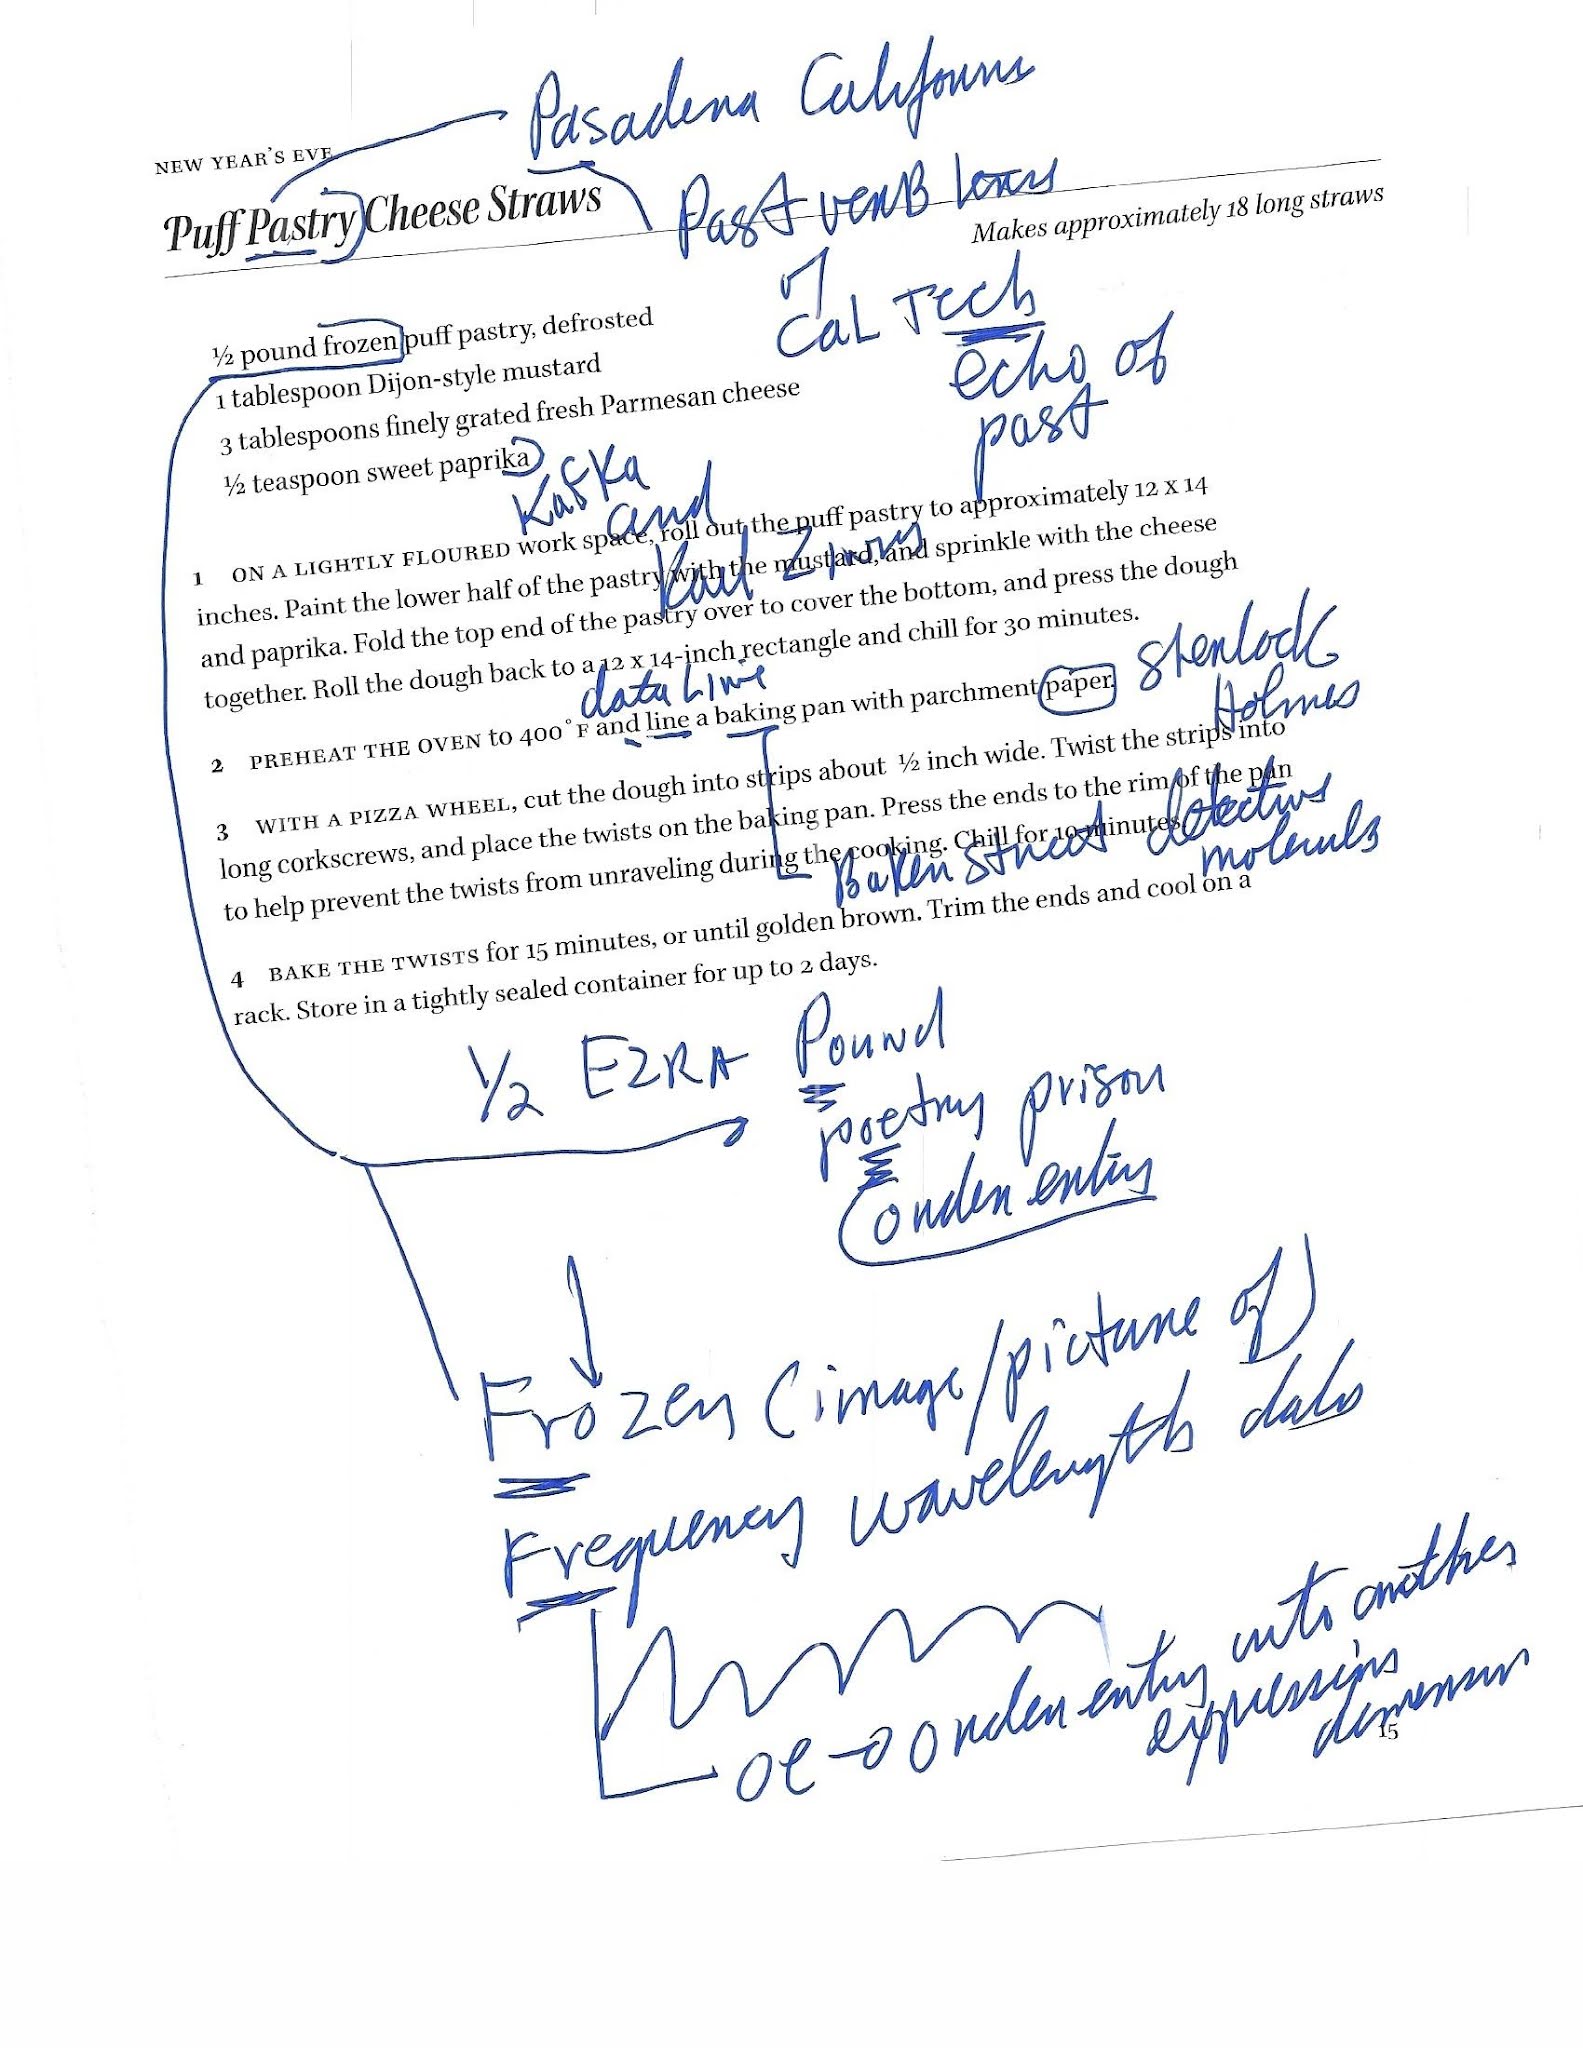 Pasadena
NEW YEAR'S EVE
Puff Pastry Cheese Straws
Past
Makes approximately 18 long straws
of
Cal Tech
echo of
past
½ pound frozen puff pastry, defrosted
1 tablespoon Dijon-style mustard
3 tablespoons finely grated fresh Parmesan cheese
½ teaspoon sweet paprika
Kafka
and
Karl
1 ON A LIGHTLY FLOURED work space, roll out the puff pastry to approximately 12 x 14
inches. Paint the lower half of the pastry with the mustard, and sprinkle with the cheese
and paprika. Fold the top end of the pastry over to cover the bottom, and press the dough
together. Roll the dough back to a 12 x 14-inch rectangle and chill for 30 minutes.
data Line
Holmes
2 PREHEAT THE OVEN to 400°F and line a baking pan with parchment paper.
3 WITH A PIZZA WHEEL, cut the dough into strips about ½ inch wide. Twist the strips into
long corkscrews, and place the twists on the baking pan. Press the ends to the rim of the pan
to help prevent the twists from unraveling during the cooking. Chill for 10 minutes.
Baker Street detective
4 BAKE THE TWISTS for 15 minutes, or until golden brown. Trim the ends and cool on a
rack. Store in a tightly sealed container for up to 2 days.
1/2 EZRA Pound
poetry prison
Frozen (image/picture of)
Frequency wavelength
into another
15